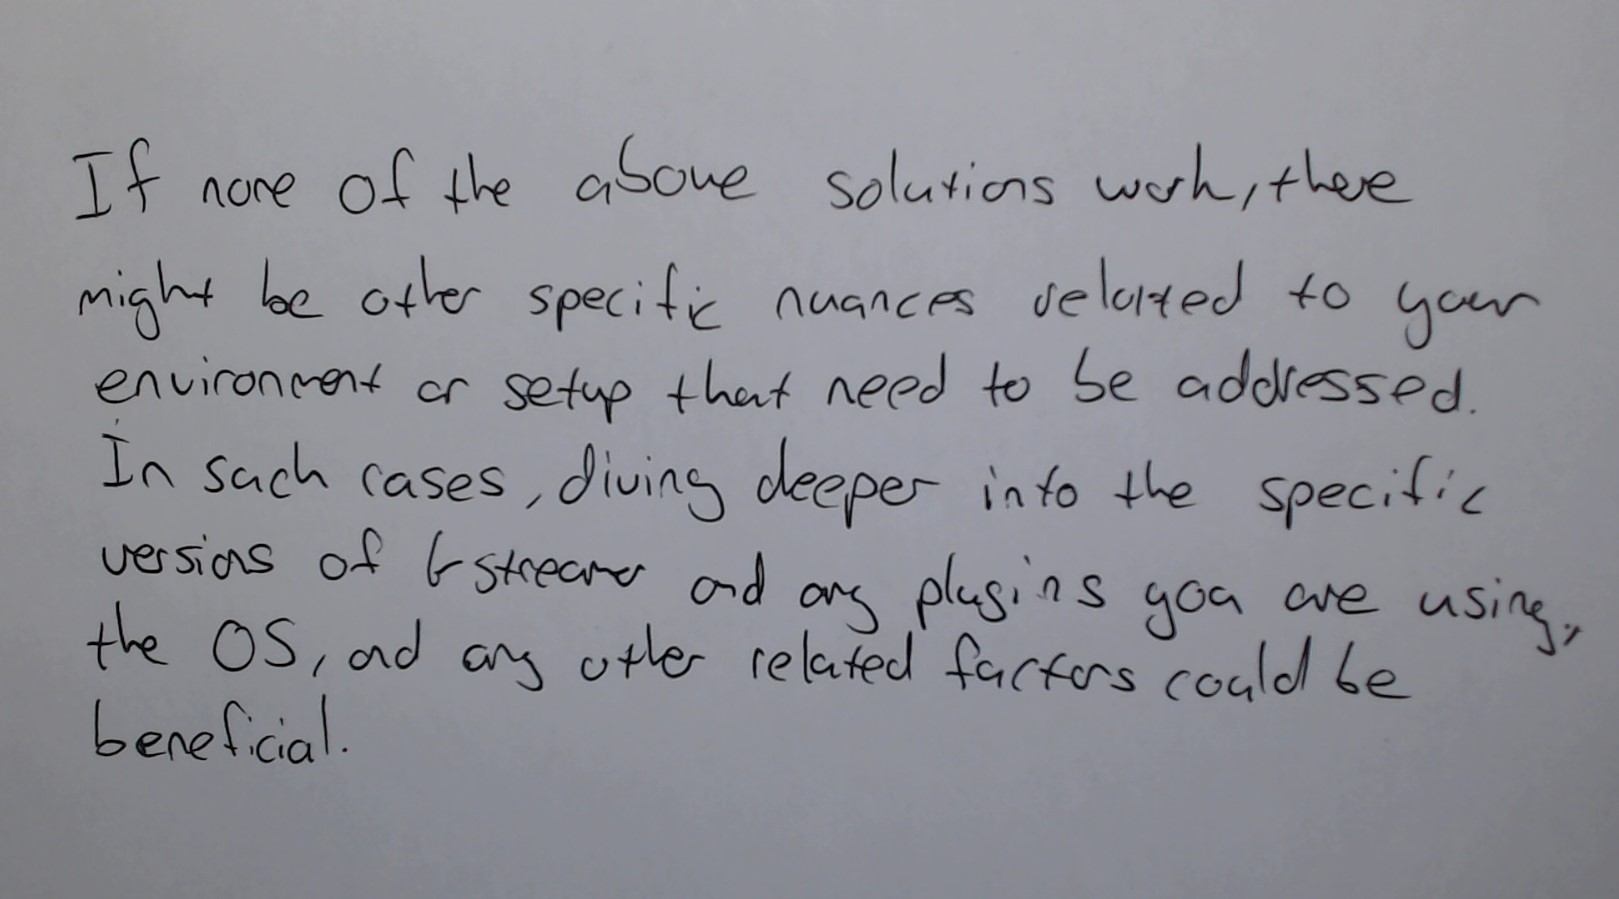 If none of the above solutions work, there
might be other specific nuances related to your
environment or setup that need to be addressed.
In such cases, diving deeper into the specific
versions of Gstreamer and any plugins you are using,
the OS, and any other related factors could be
beneficial.